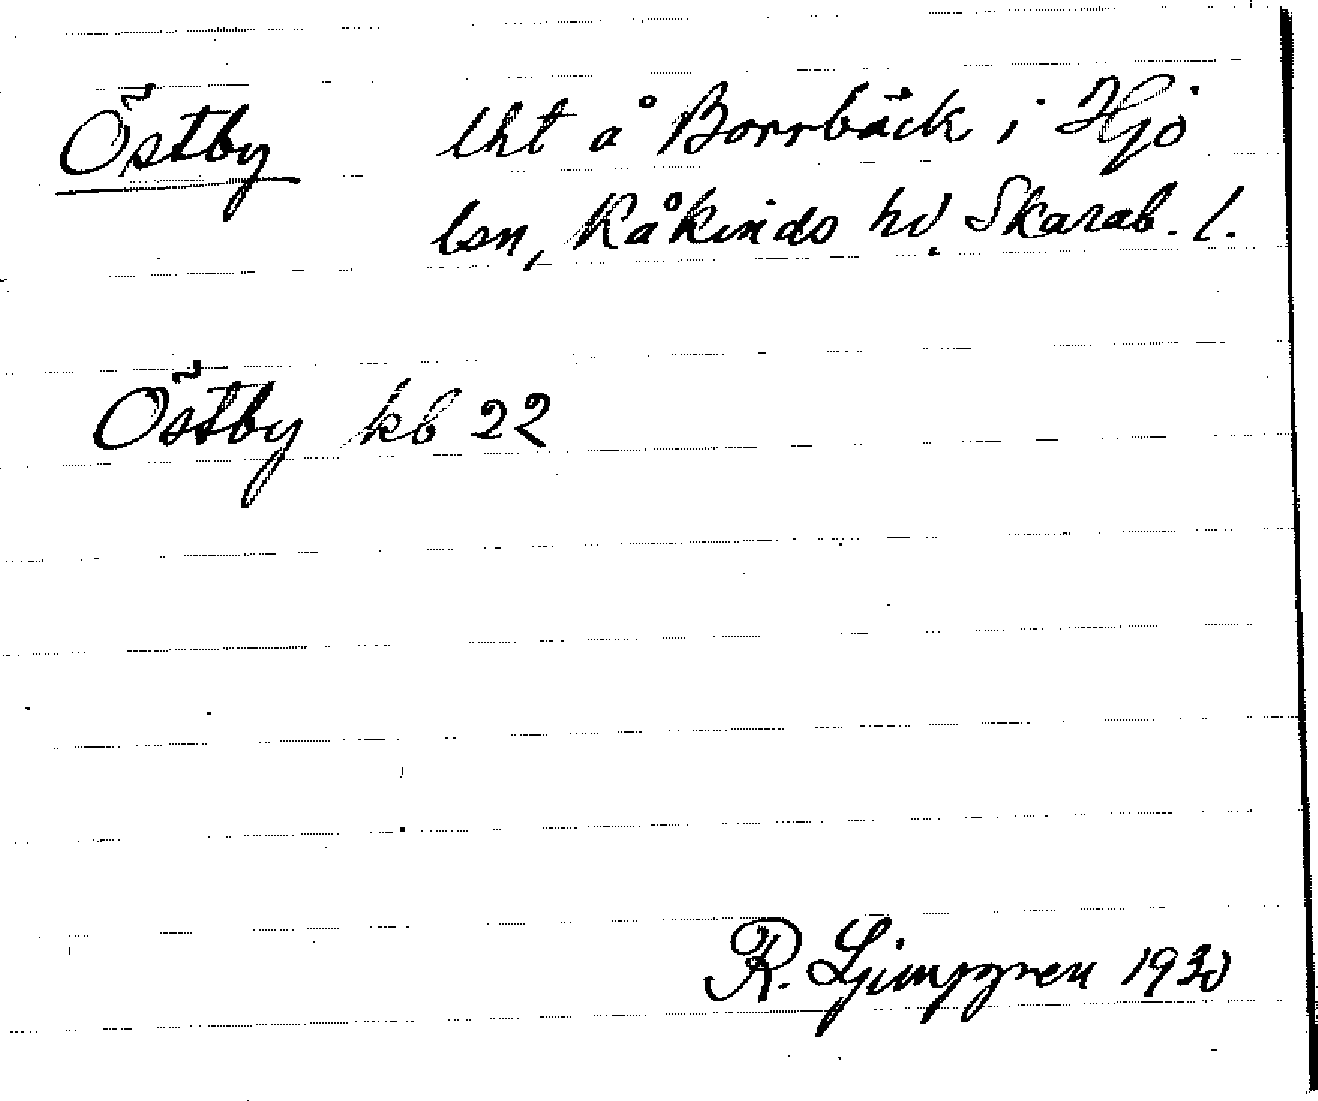 Östby lht å Borrbäck i Hjo
lsn, Kåkinds hd. Skarab. l.
Östby kb 22
R. Ljunggren 1930